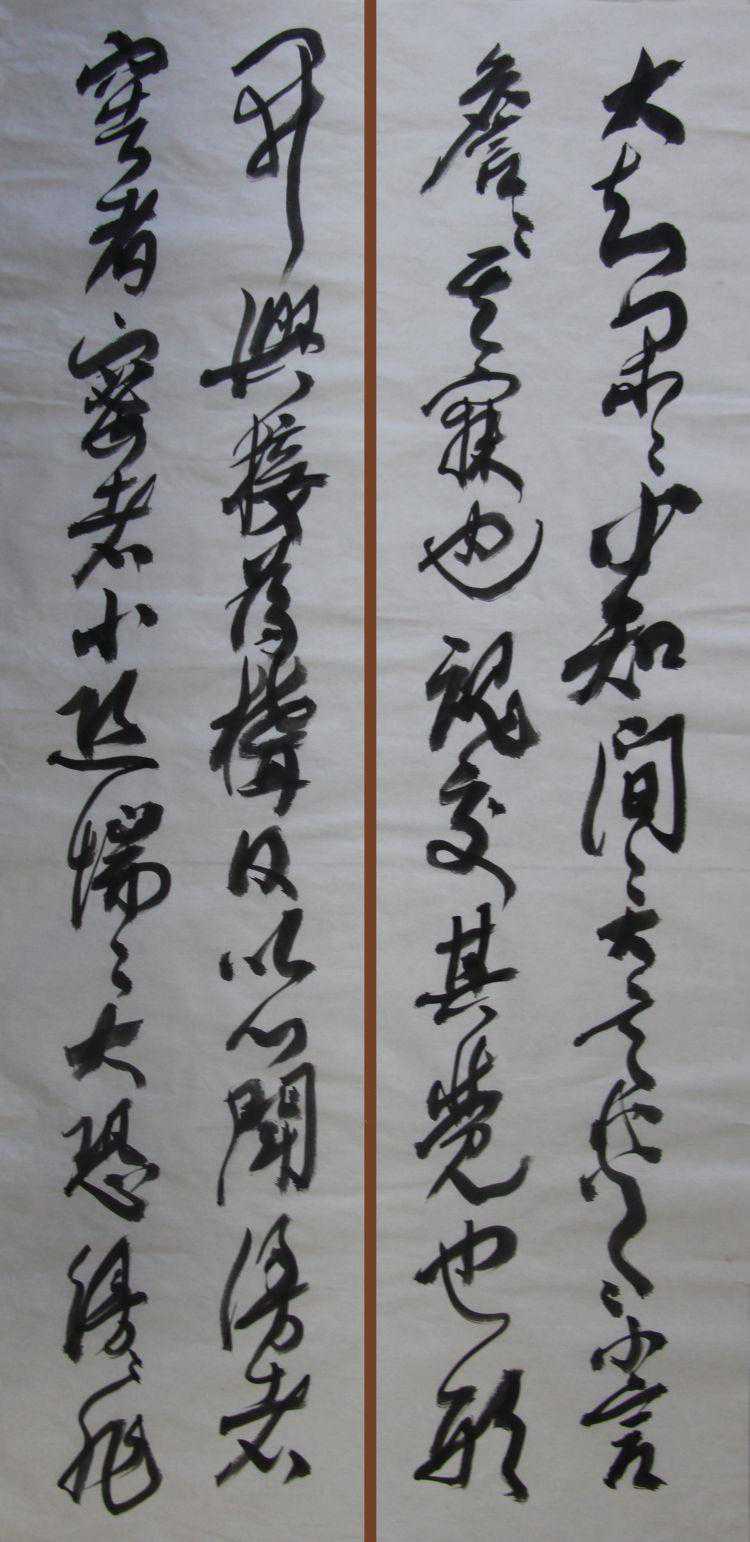 大知閑〻小知間〻大言炎〻小言
詹〻其寐也魂交其覺也形
開與接為構日以心鬭縵者
窖者密者小恐惴〻大恐縵〻